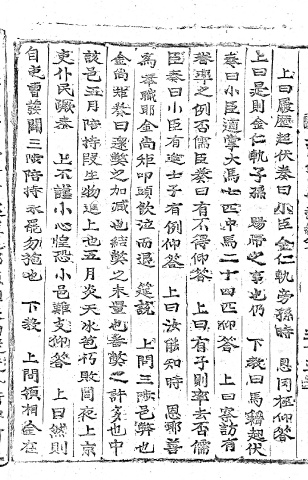 上曰履歷起伏奏曰小臣金仁軌旁孫時 恩罔極仰答
上曰是則金仁軌子孫 賜帶之事也仍 下教曰馬籍起伏
奏曰小臣適掌大馬七匹中馬二十四匹仰答 上曰察訪有
眷率之例否儒臣奏曰有不得仰答 上曰有子則率去否儒
臣奏曰小臣有迷士子有例仰答 上曰汝能知時 恩耶善
爲奉職耶金尚矩叩頭飮泣而退 筵說 上問三陟邑弊也
金尚矩奏曰還弊之加減也結弊之未量也蔘弊之許多也中
該邑五月陪持段生物進上也五月炎天氷朽敗罔夜上京
吏仆民蹶奏 上不謹小心惶恐小邑難支仰答 上曰然則
自曹該關三陟陪持永罷勿施也 下敎 上問領相金在